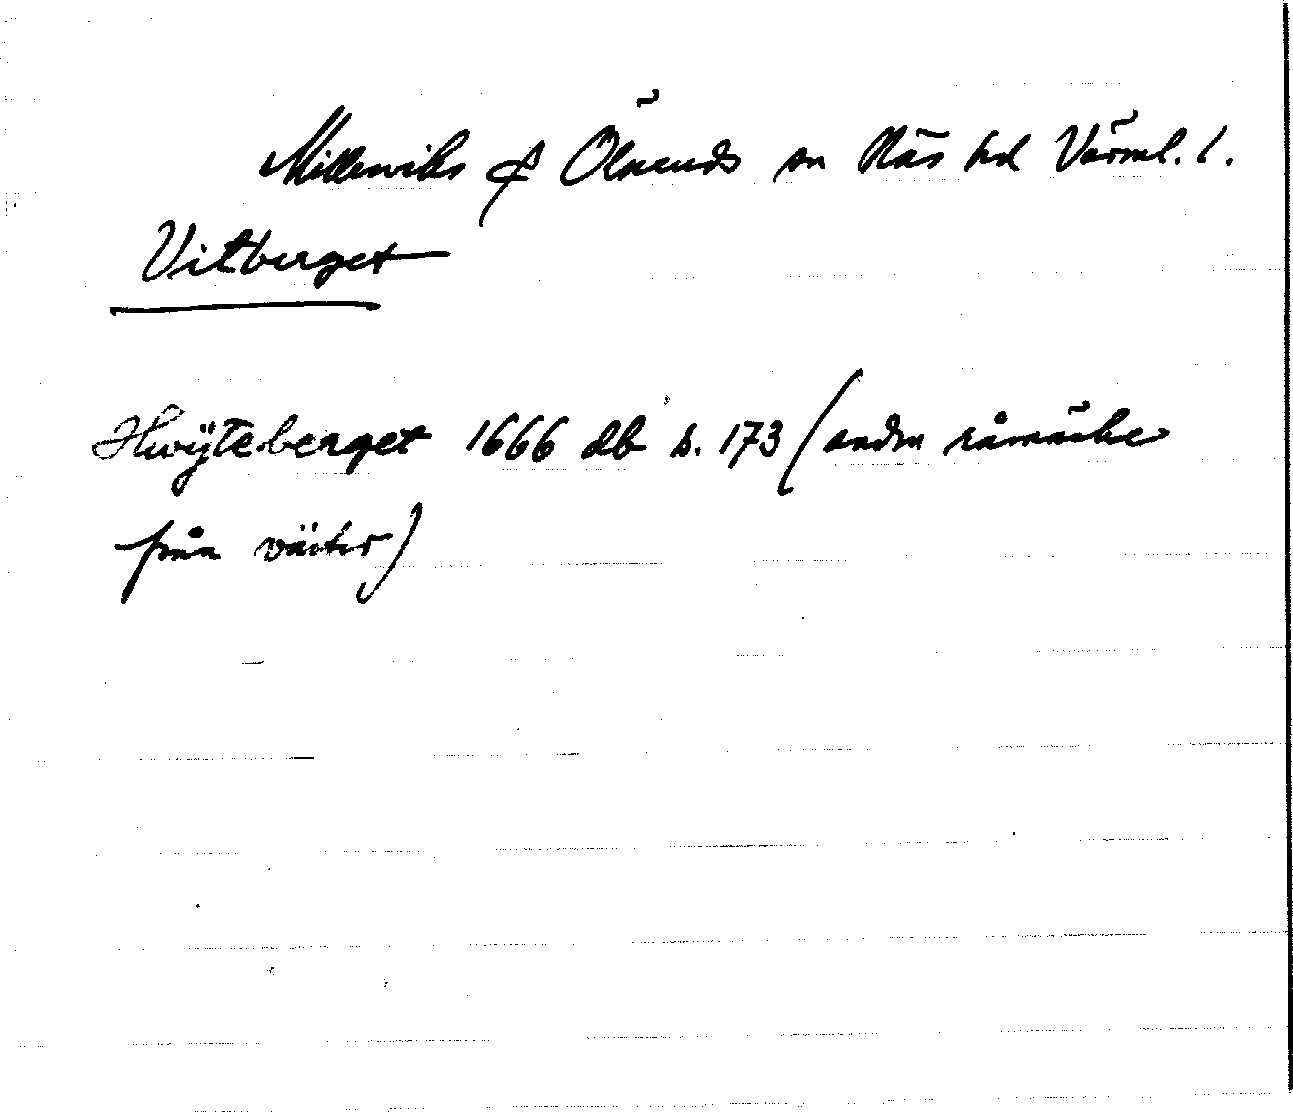 Millerviks f Ölseruds sn Näs hd Värml. l.
Vitberget
Hwÿteberget 1666 db s. 173 (andra råmärke
från väster)